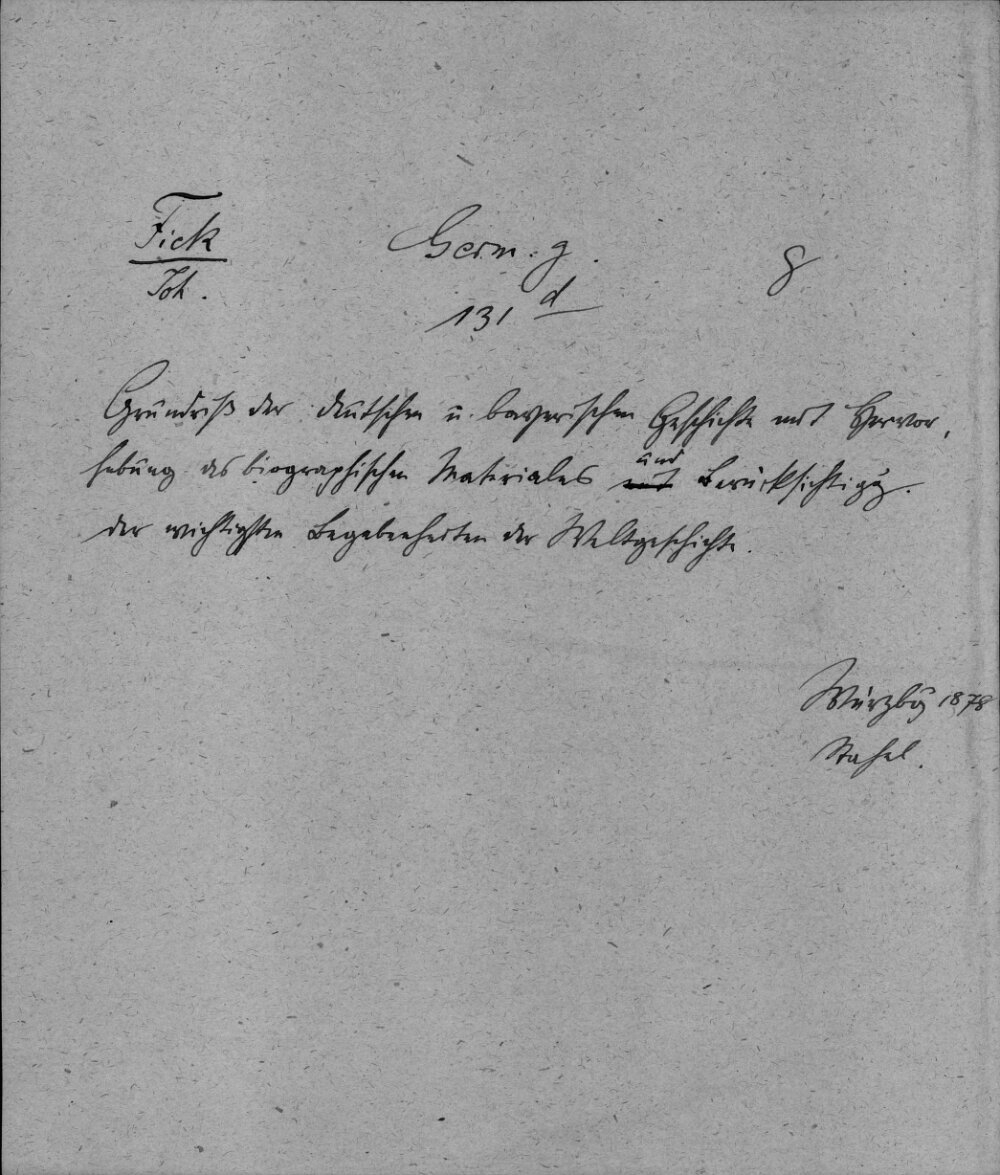 Fick
Joh.
Germ. g.
131 d
8
Grundriß der deutschen u. bayerischen Geschichte mit Hervor,
hebung des biographischen Materiales und Berücksichtigg.
der wichtigsten Begebenheiten der Weltgeschichte.
Würzbg 1878
Stahel.